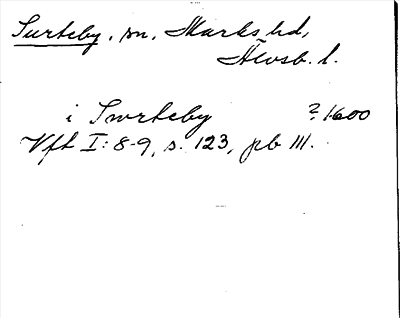 Surteby, sn, Marks hd,
Älvsb. l.
i Swrteby ? 1600
Vft I: 8-9, s. 123, pb III.